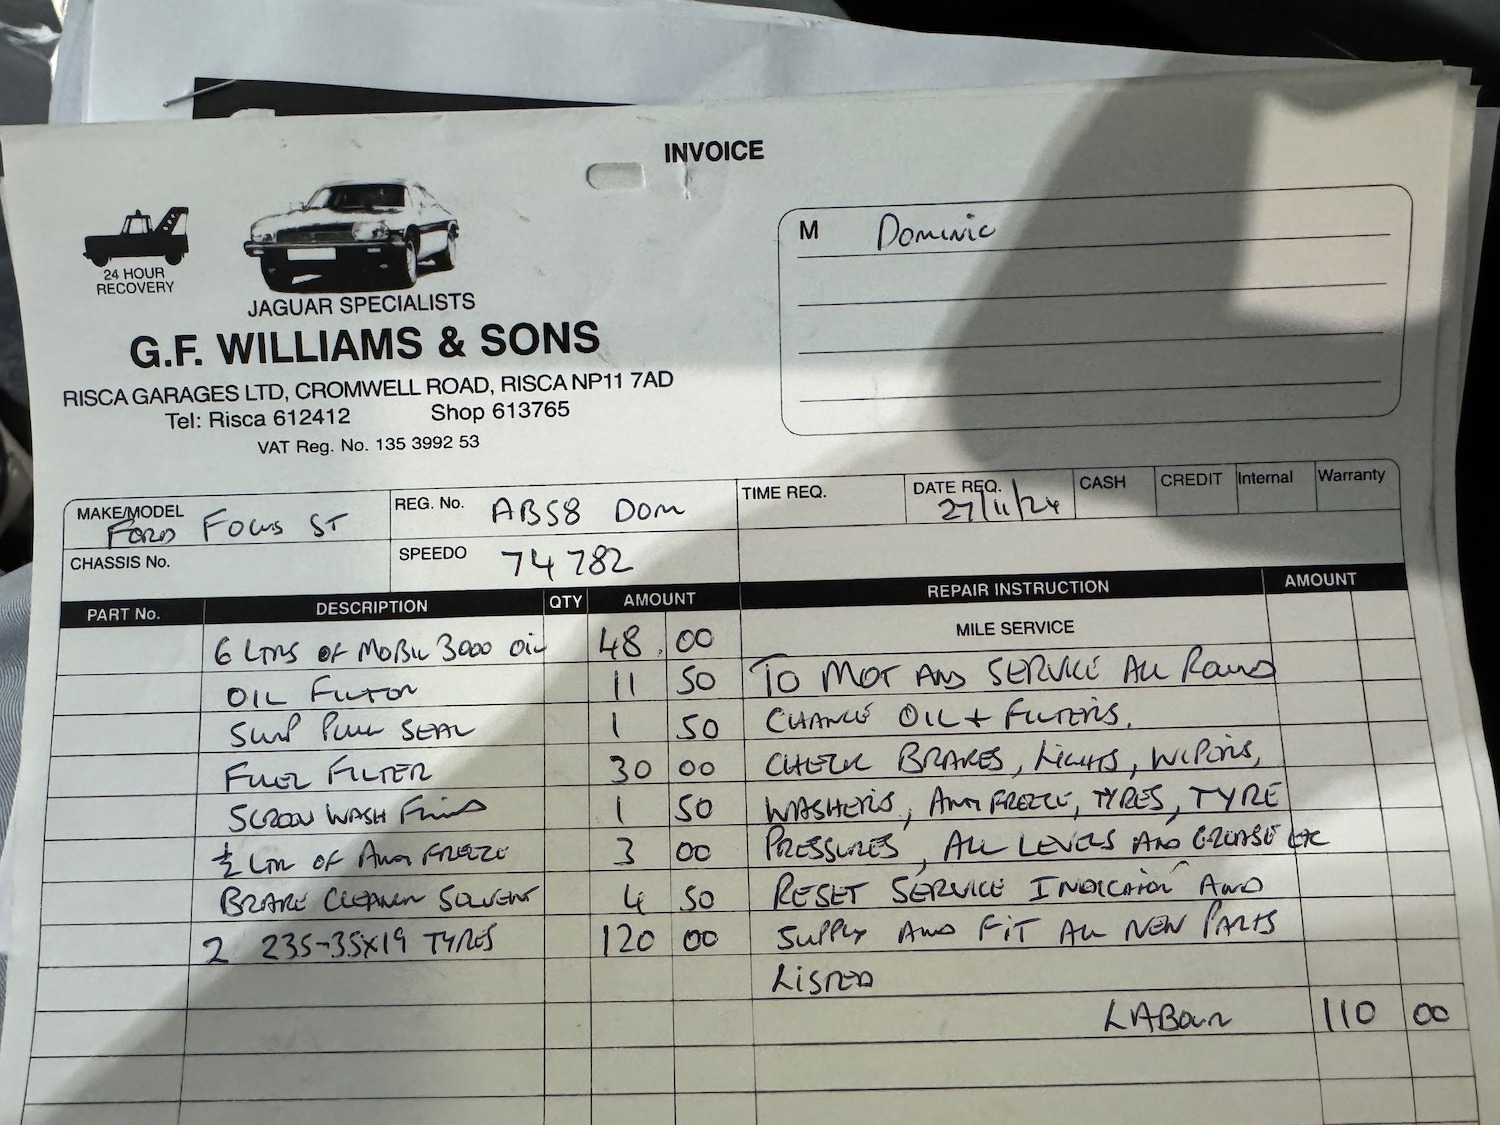 INVOICE
24 HOUR
RECOVERY
JAGUAR SPECIALISTS
G.F. WILLIAMS & SONS
RISCA GARAGES LTD, CROMWELL ROAD, RISCA NP11 7AD
Tel: Risca 612412 Shop 613765
VAT Reg. No. 135 3992 53
M Dominic
MAKE/MODEL Ford Focus ST
REG. No. AB58 Dom
TIME REQ.
DATE REQ. 27/11/24
CASH CREDIT Internal Warranty
CHASSIS No.
SPEEDO 74782
PART No. DESCRIPTION QTY AMOUNT REPAIR INSTRUCTION AMOUNT
MILE SERVICE
6 LTRS OF MOBIL 3000 OIL 48.00
OIL FILTOR 11 50
SUMP PLUG SEAL 1 50
FUEL FILTER 30 00
SCREEN WASH FLUID 1 50
½ LTR OF ANTI FREEZE 3 00
BRAKE CLEANER SOLVENT 4 50
2 235-35x19 TYRES 120 00
TO MOT AND SERVICE ALL ROUND
CHANGE OIL + FILTERS.
CHECK BRAKES, LIGHTS, WIPERS,
WASHERS, ANTI FREEZE, TYRES, TYRE
PRESSURES, ALL LEVELS AND GREASE ETC
RESET SERVICE INDICATOR AND
SUPPLY AND FIT ALL NEW PARTS
LISTED
LABOUR 110 00